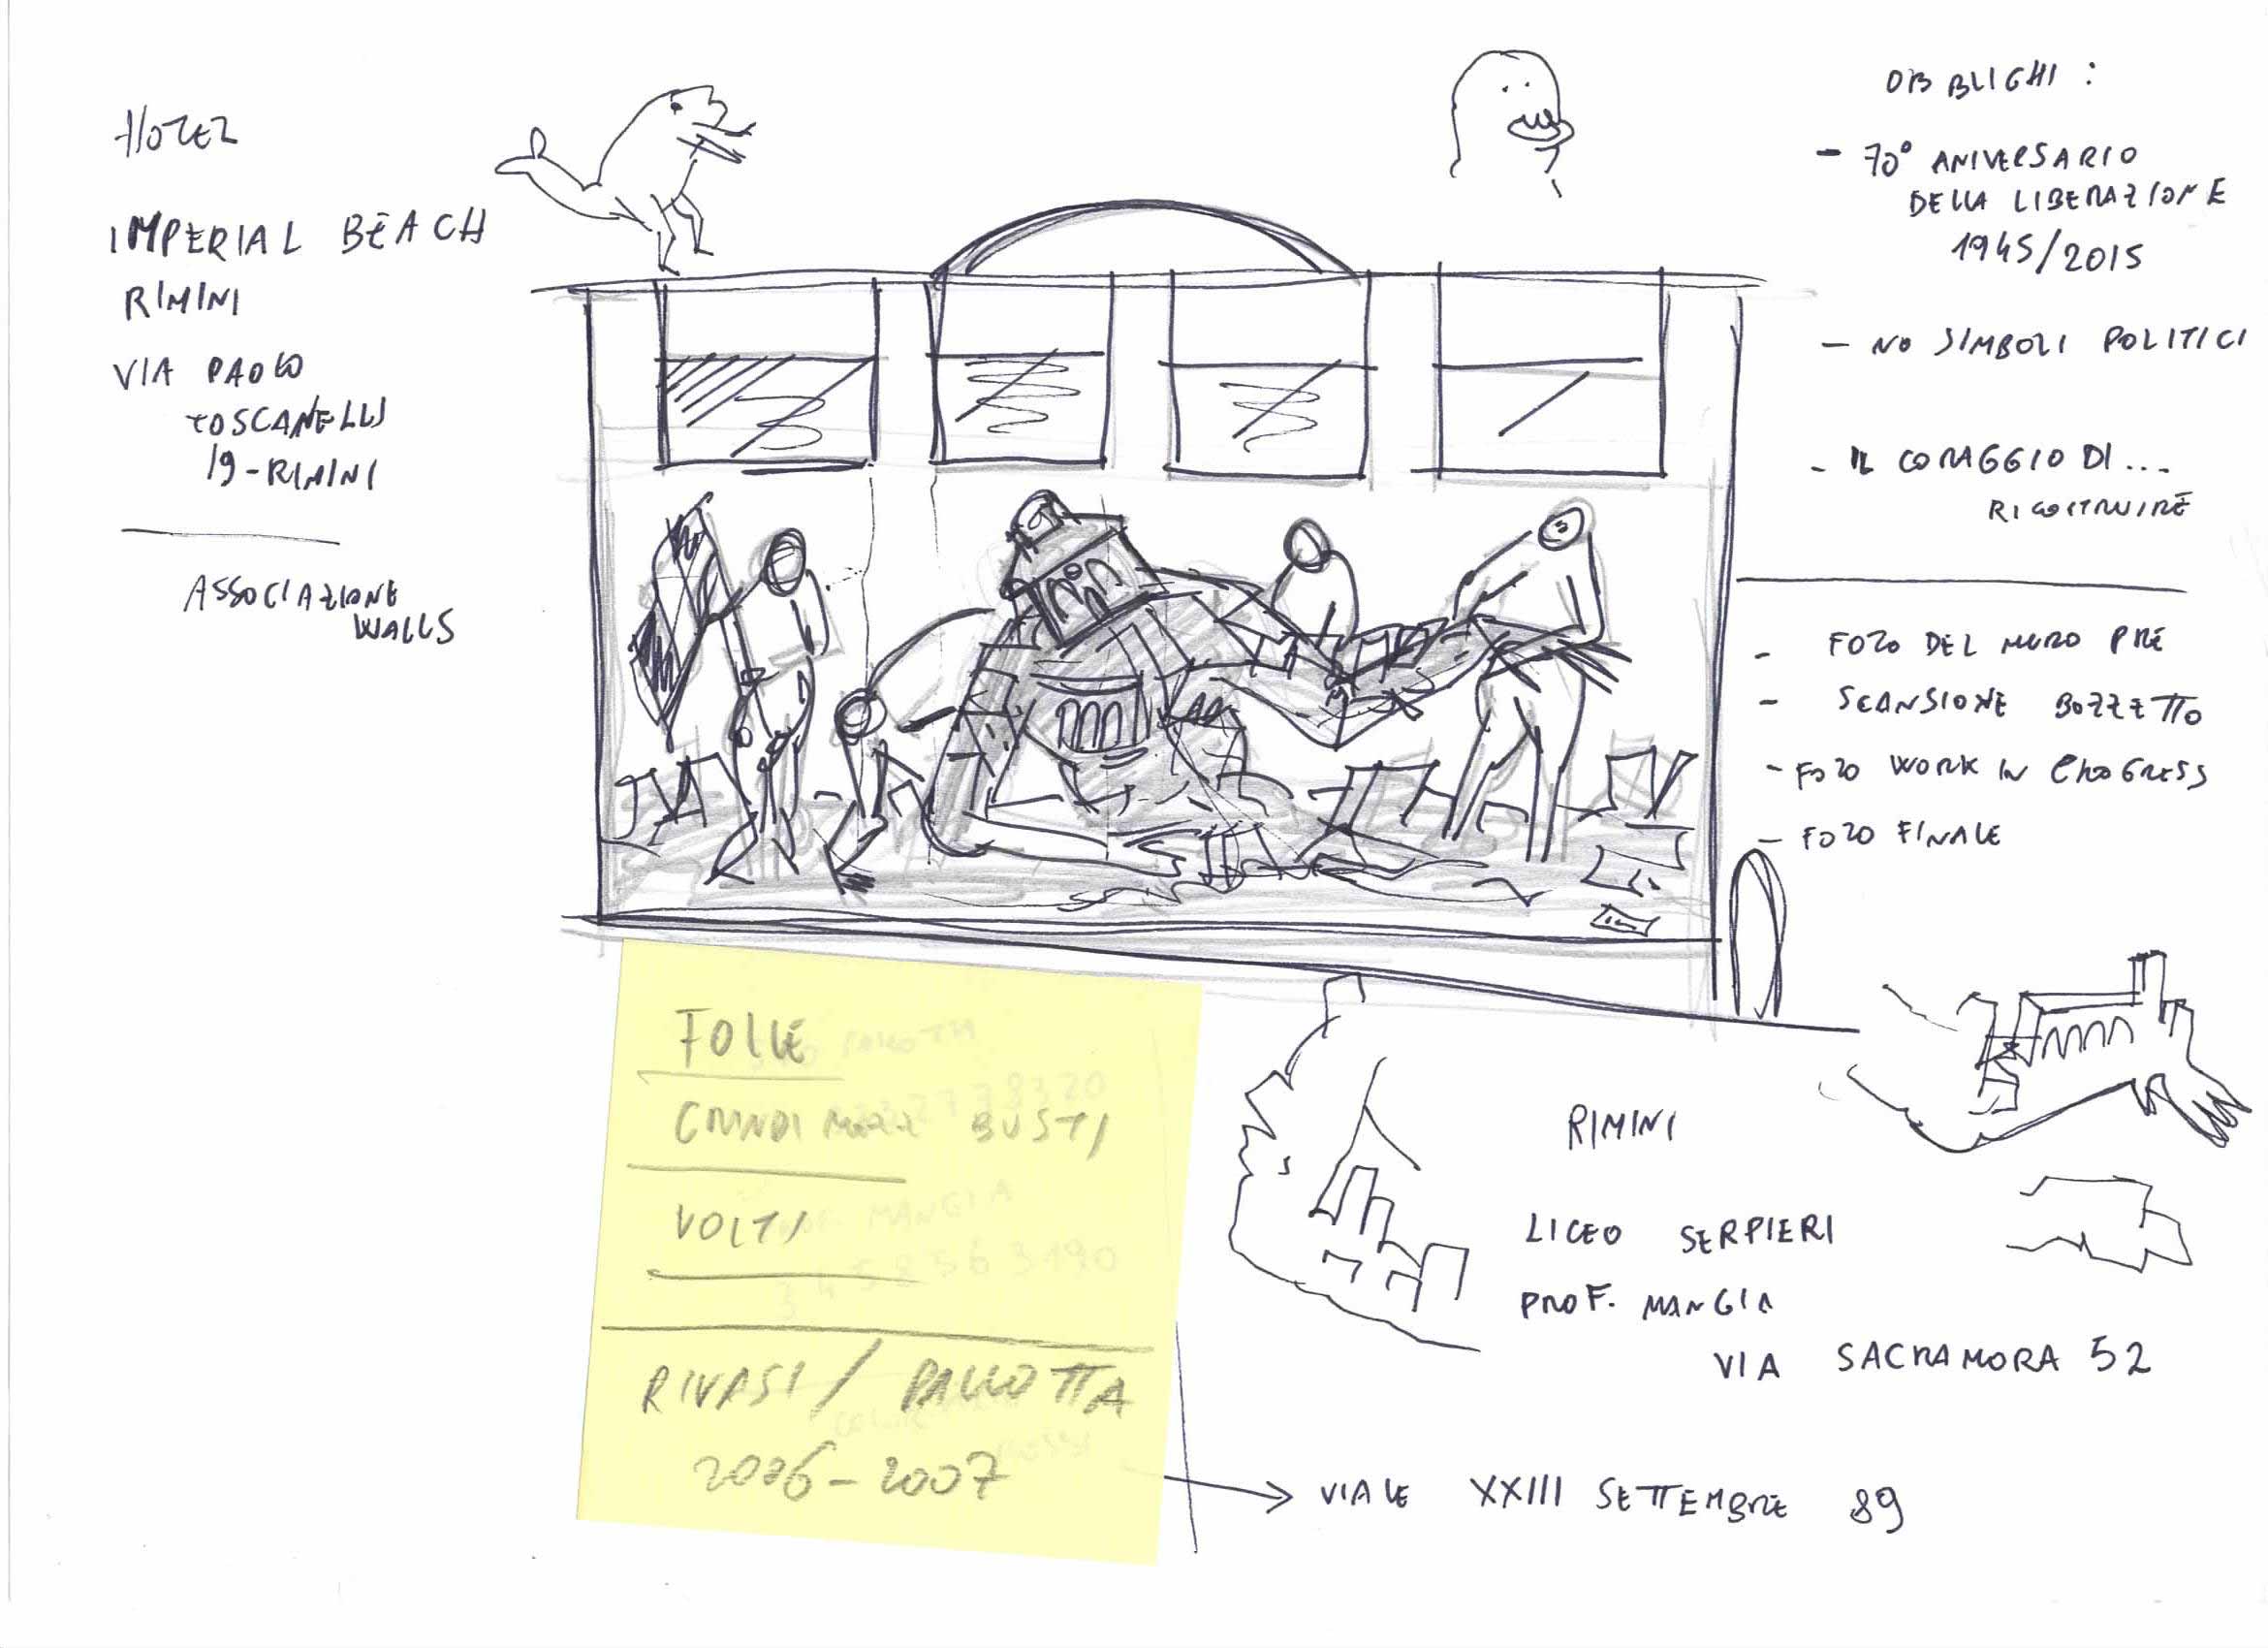 HOTEL
IMPERIAL BEACH
RIMINI
VIA PAOLO
TOSCANELLI
19-RIMINI
ASSOCIAZIONE
WALLS
OBBLIGHI:
- 70° ANIVERSARIO
DELLA LIBERAZIONE
1945/2015
- NO SIMBOLI POLITICI
- IL CORAGGIO DI...
RICOSTRUIRE
- FOTO DEL MURO PRE
- SCANSIONE BOZZETTO
- FOTO WORK IN PROGRESS
- FOTO FINALE
FOLLE
GRANDI MEZZ BUSTI
VOLTI
RIVASI / PALLOTTA
2006-2007
RIMINI
LICEO SERPIERI
PROF. MANGIA
VIA SACRAMORA 52
VIALE XXIII SETTEMBRE 89